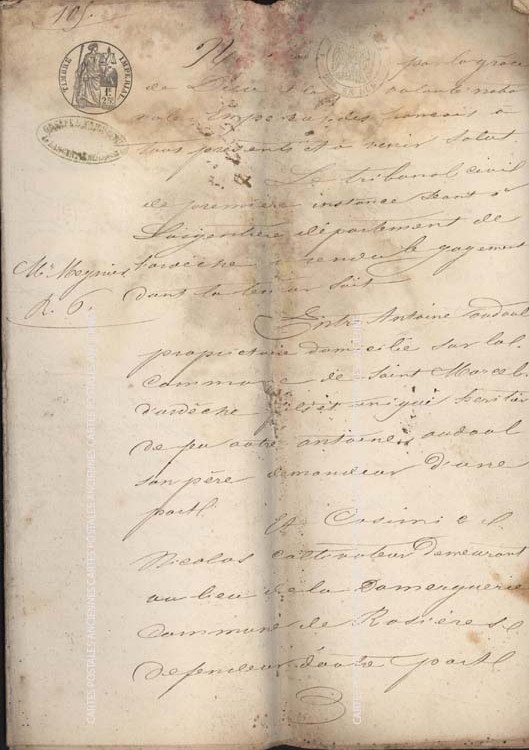 105
TIMBRE IMPERIAL
25c
N par la grace
de Dieu et la volonté natio
nale Empereur des francais a
tous présents et à venir salut
Le tribunal civil
de première instance séant à
Largentière département de
l'ardèche a rendu le jugement
dont la teneur suit
Mr Meynier
Entre Antoine audoul
propriétaire domicilié sur la
commune de Saint Marcel
d'ardèche fils et unique heritier
de feu autre antoine audoul
son père demandeur d'une
part
Et Casimir
Nicolas cultivateur demeurant
au lieu de la Domerguerie
commune de Rosières
defendeur d'autre part
CARTES POSTALES ANCIENNES CARTES POSTALES ANCIENNES CARTES
CARTES POSTALES ANCIENNES